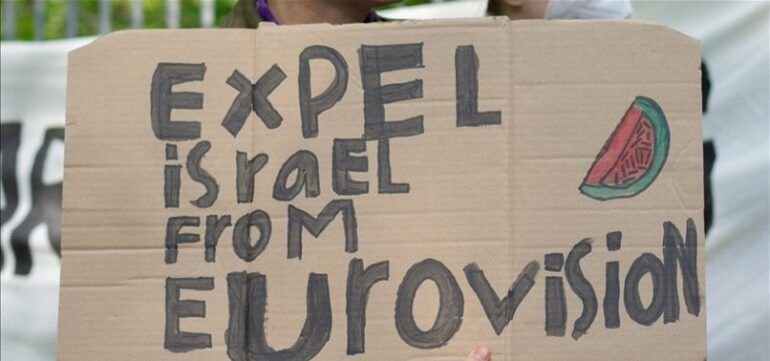 EXPEL
israEL
From
EUrovision